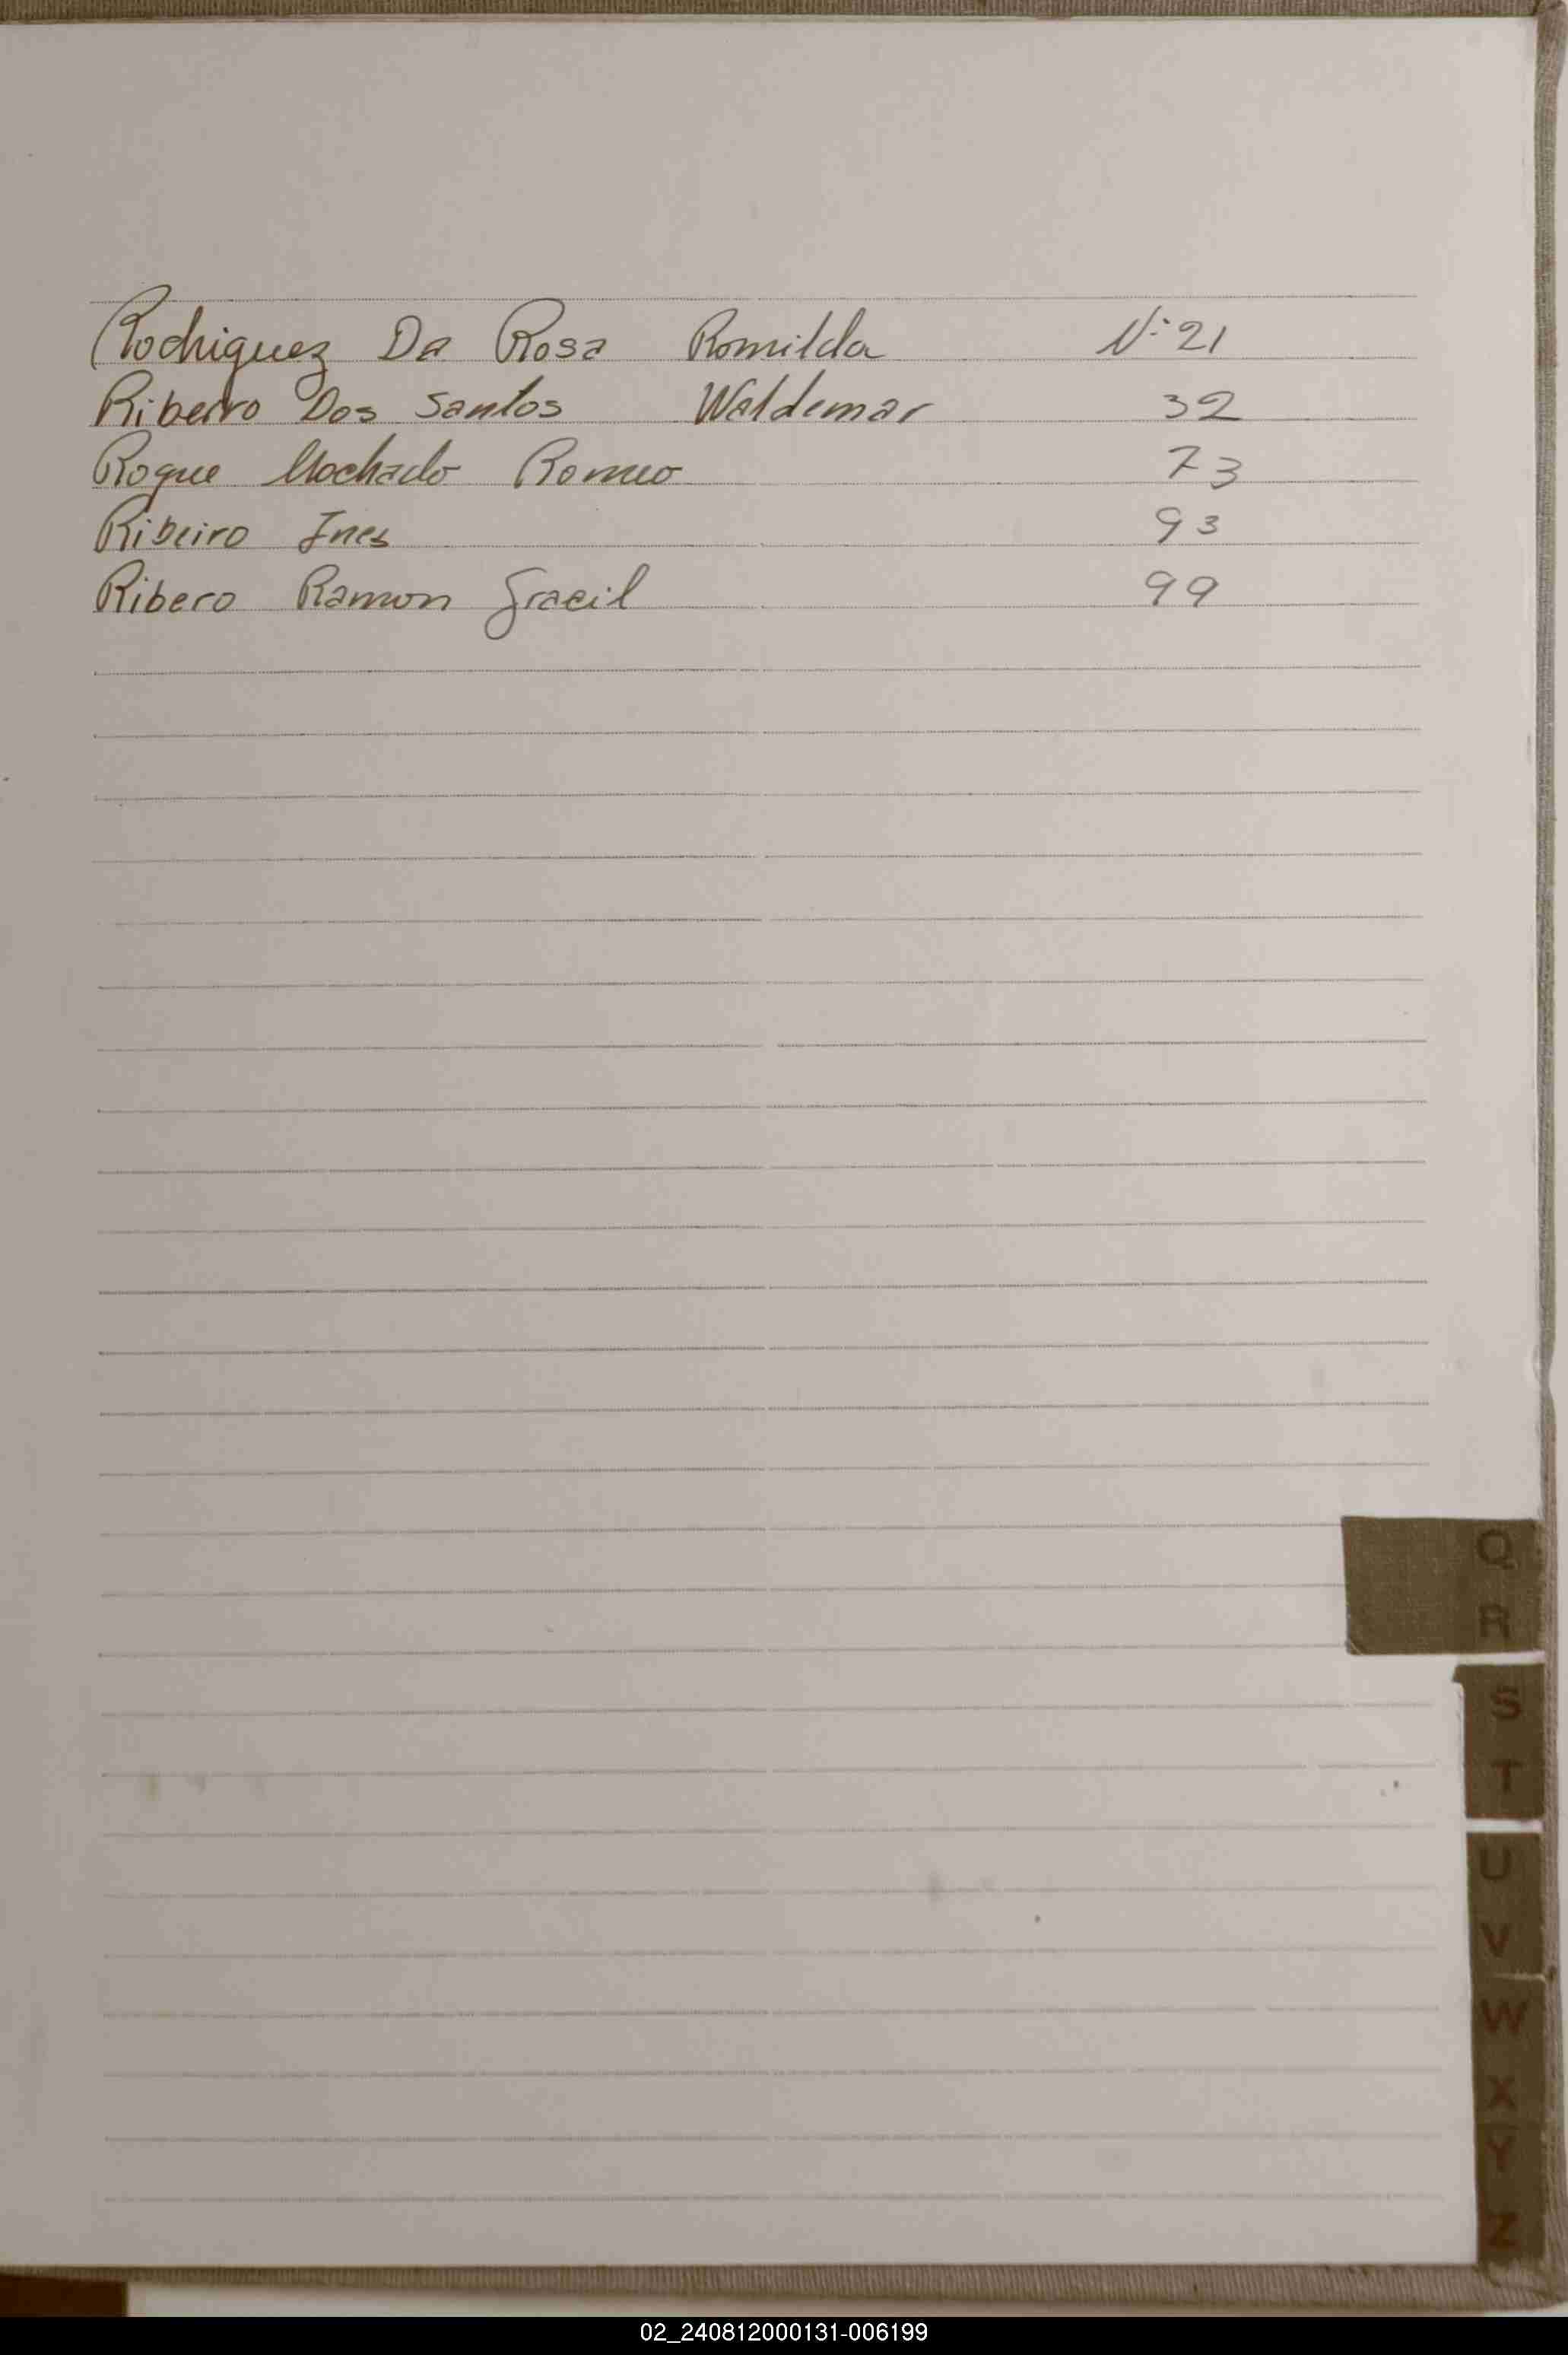 Rodriguez Da Rosa Romilda Nº 21
Ribeiro Dos Santos Waldemar 32
Roque Machado Romeo 73
Ribeiro Ines 93
Ribero Ramon Gracil 99
Q
R
S
T
U
V
W
X
Y
Z
02_240812000131-006199